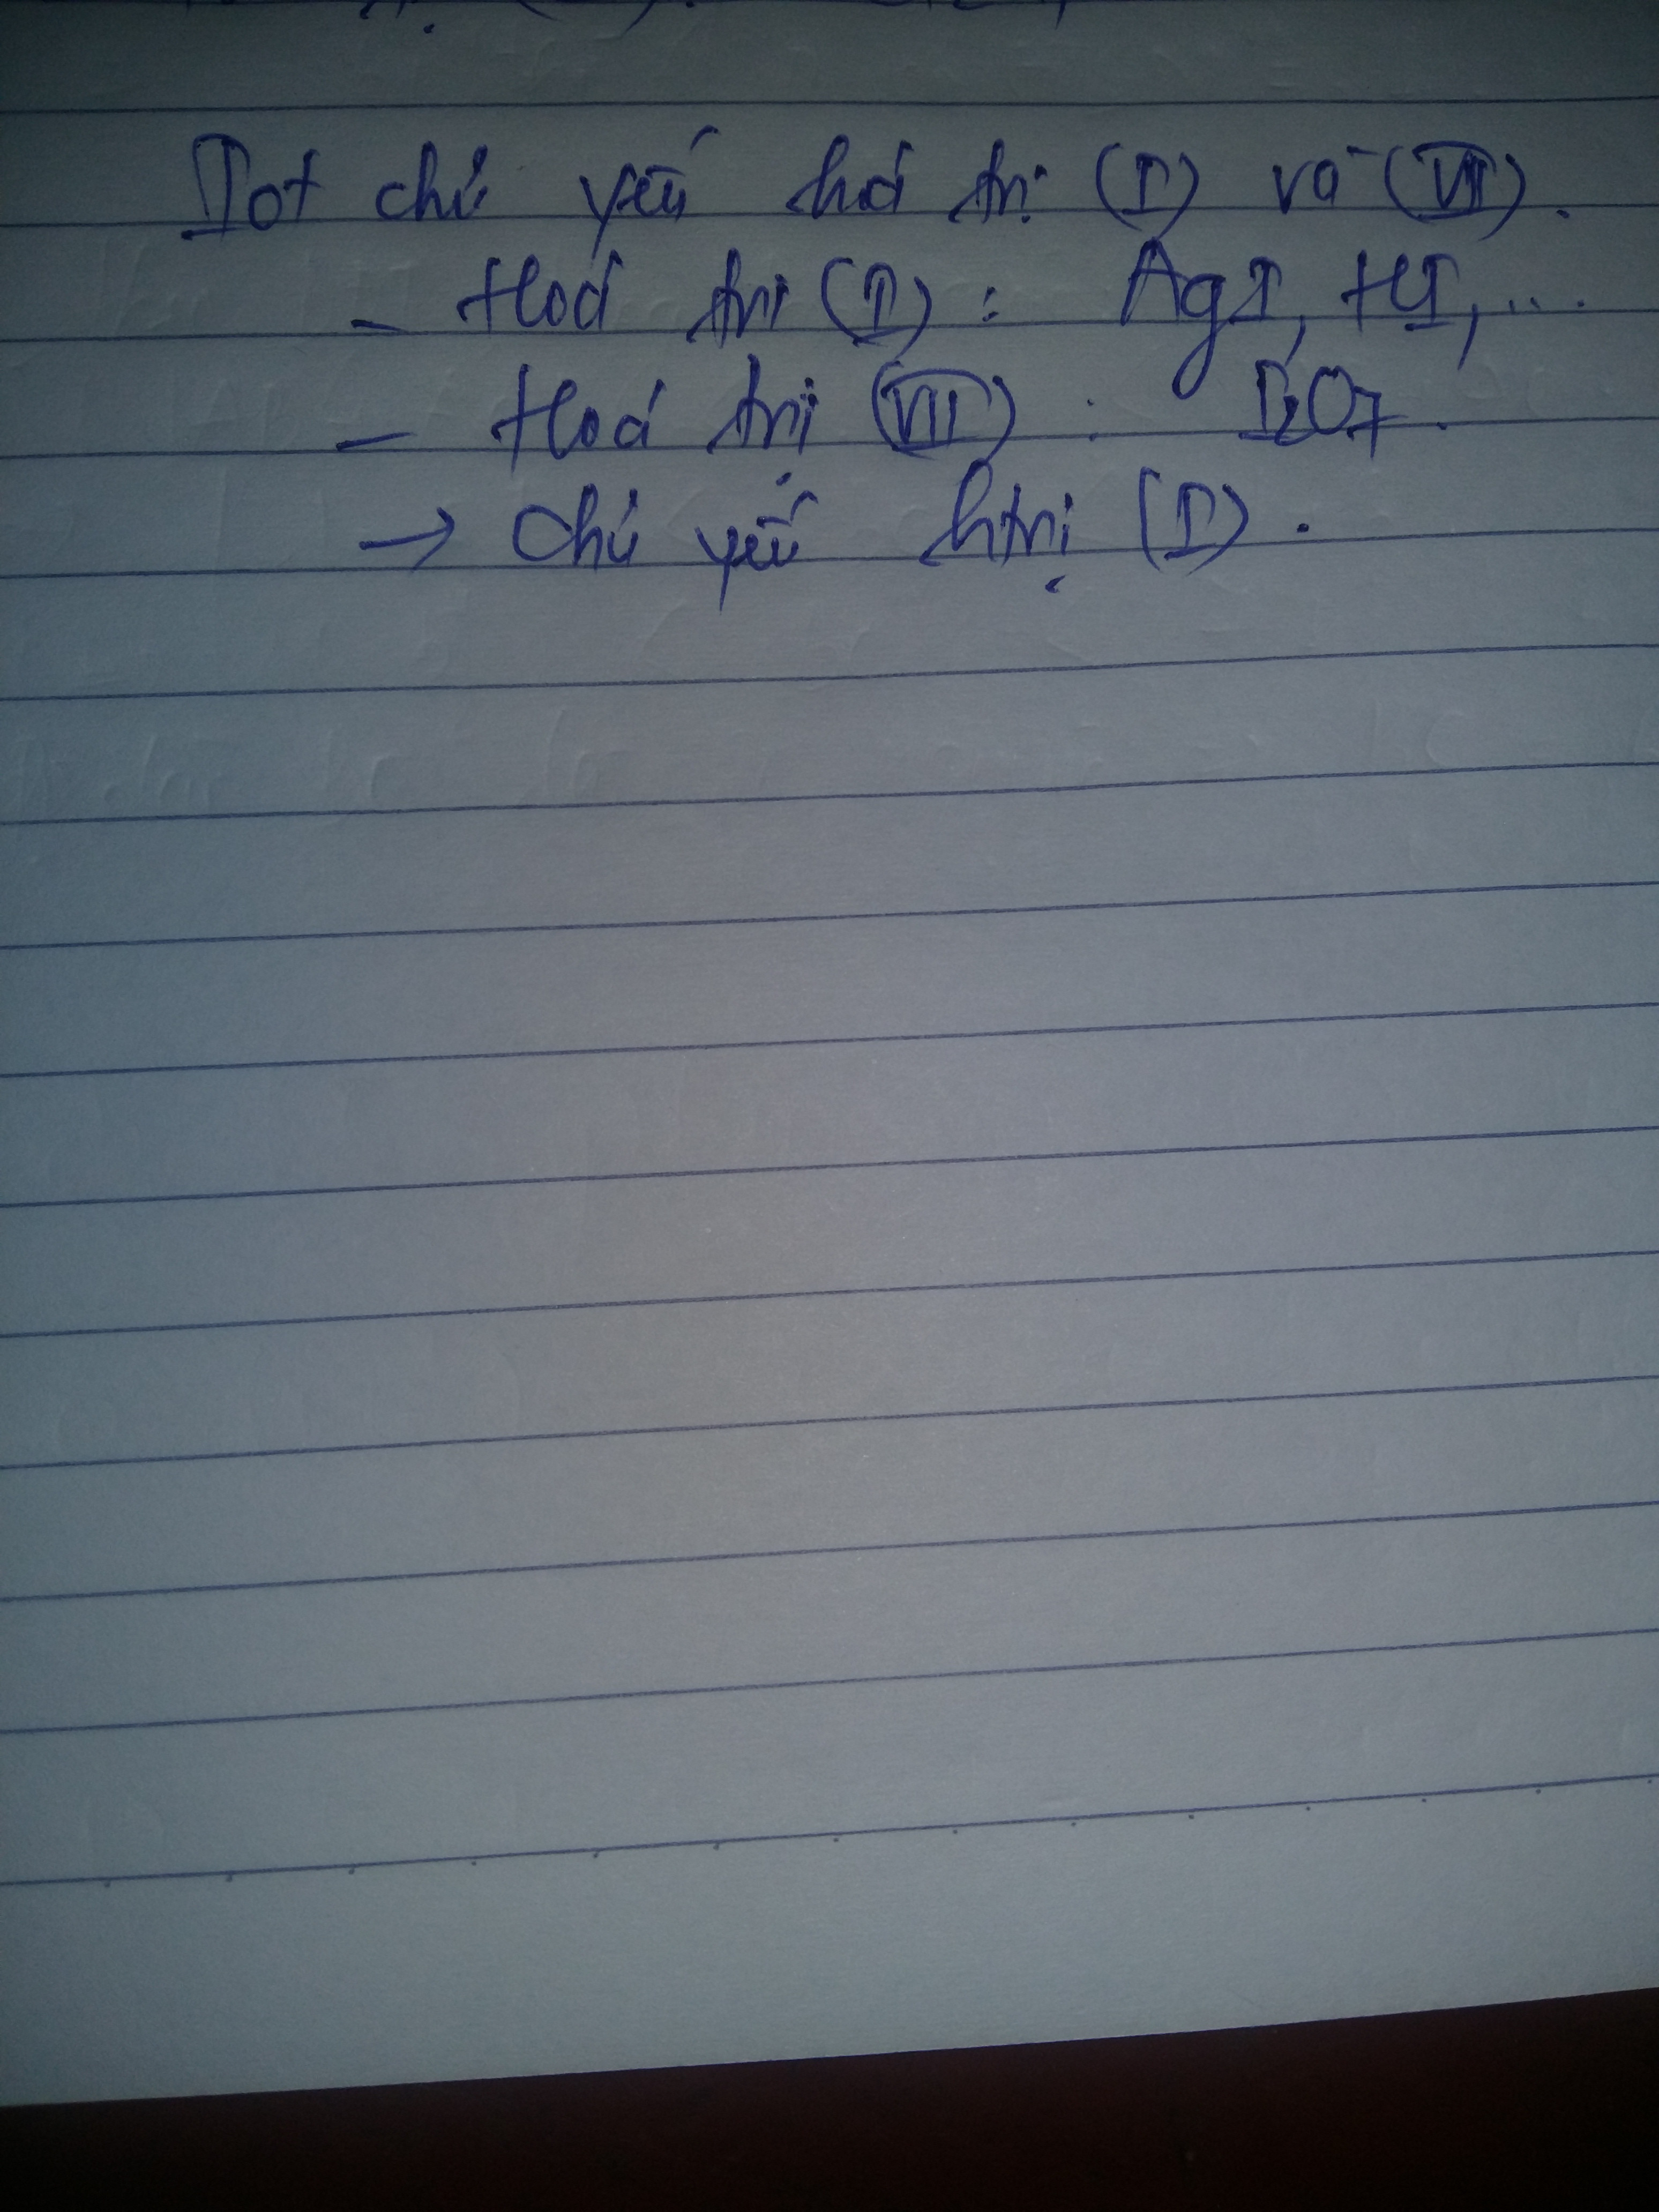 Iot chủ yếu hoá trị (I) và (VII).
- Hoá trị (I) : AgI, HI, ...
- Hoá trị (VII) : I2O7.
→ Chủ yếu htrị (I).